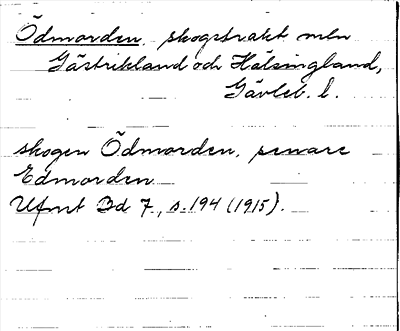 Ödmorden, skogstrakt mln
Gästrikland och Hälsingland,
Gävleb. l.
skogen Ödmorden, senare
Edmorden
Ufmt Bd 7, s. 194 (1915).